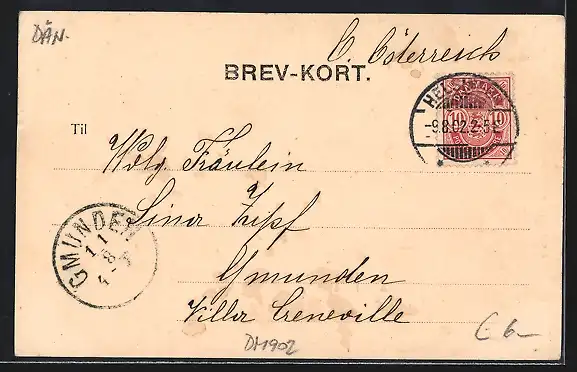 DÄN.
O. Österreich
BREV-KORT.
HELSINGØR
-9.8.02.2-5E
10 10
Til
Wolg. Fräulein
Lina Zipf
Gmunden
Villa Creneville
GMUNDEN
11
8
4-
DM902
€ 6-